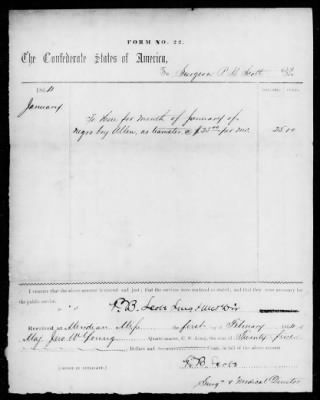 FORM NO. 22.
The Confederate States of America,
To Surgeon P. B. Scott Dr.
DOLLARS. CENTS.
1864
January
To hire for month of January of
negro boy Allen, as teamster @ $25.00 per mo.
25 00
I CERTIFY that the above account is correct and just; that the services were rendered as stated, and that they were necessary for
the public service.
P. B. Scott Surg & Med Dir
Received at Meridian Miss the first of February 1864 of
Maj. Jno. W. Young Quartermaster, C. S. Army, the sum of Twenty five
Dollars and Cents, in full of the above account.
P. B. Scott
(SIGNED IN DUPLICATE.)
Surg. & Medical Director